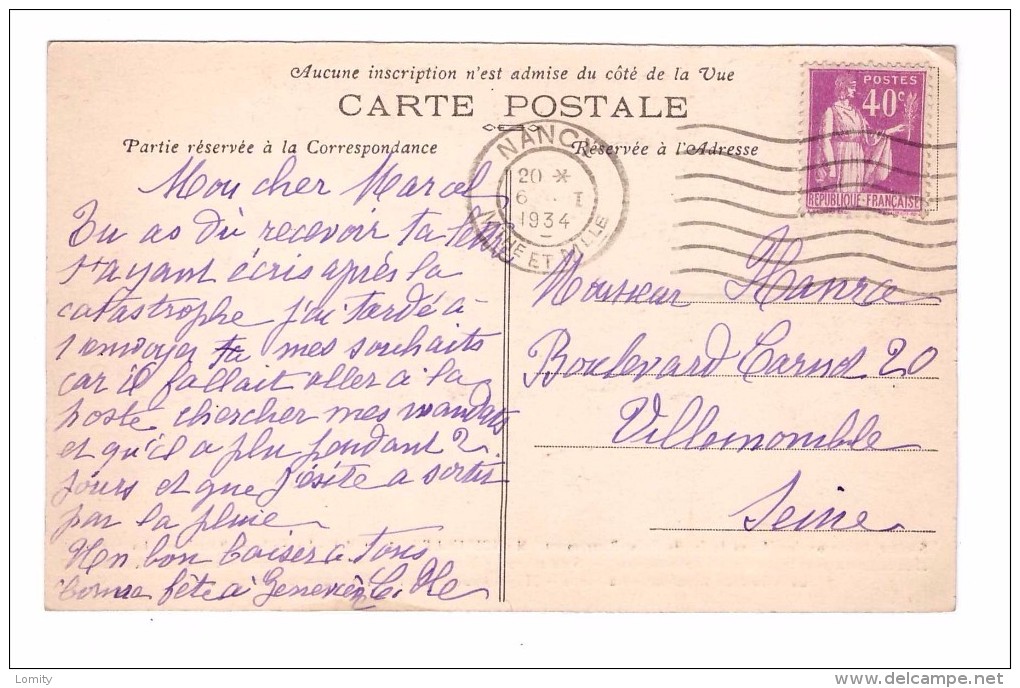 Aucune inscription n'est admise du côté de la Vue
CARTE POSTALE
Partie réservée à la Correspondance
Réservée à l'Adresse
POSTES
40c
REPUBLIQUE-FRANÇAISE
NANCY
20 *
6 I
1934
MNE ET MLLE
Mon cher Marcel
Tu as dû recevoir ta lettre
t'ayant écris après la
catastrophe j'ai tardé à
t'envoyer mes souhaits
car il fallait aller à la
poste chercher mes mandats
et qu'il a plu pendant 2
jours et que j'ésite a sortir
par la pluie
Un bon baiser a tous
bonne fête à Geneviève
Monsieur
Boulevard Carnot 20
Villemomble
Seine
Lomity
delcampe.net